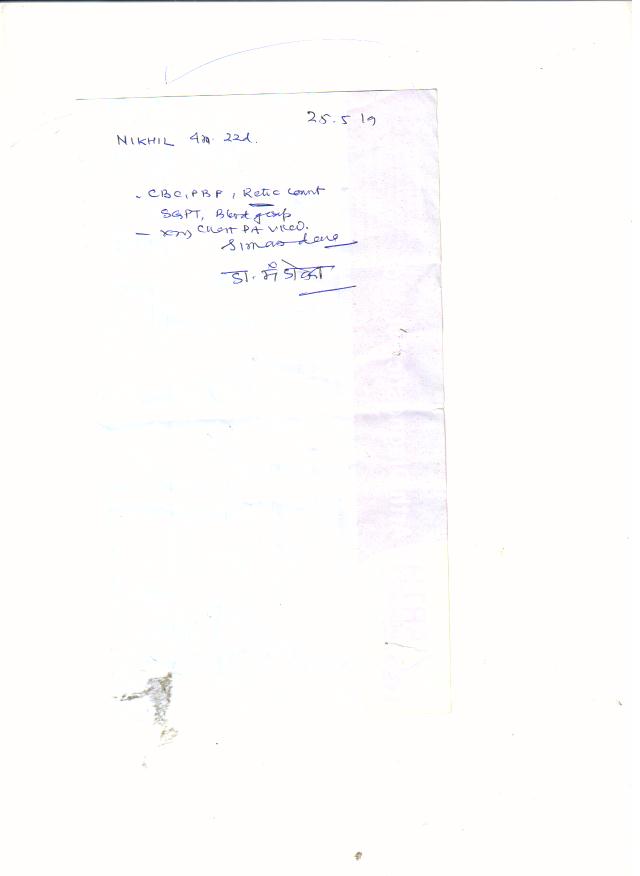 25.5.19
NIKHIL 4m. 22d.
- CBC, PBP, Retic count
SGPT, Blood group
- Chest PA view.
डा.